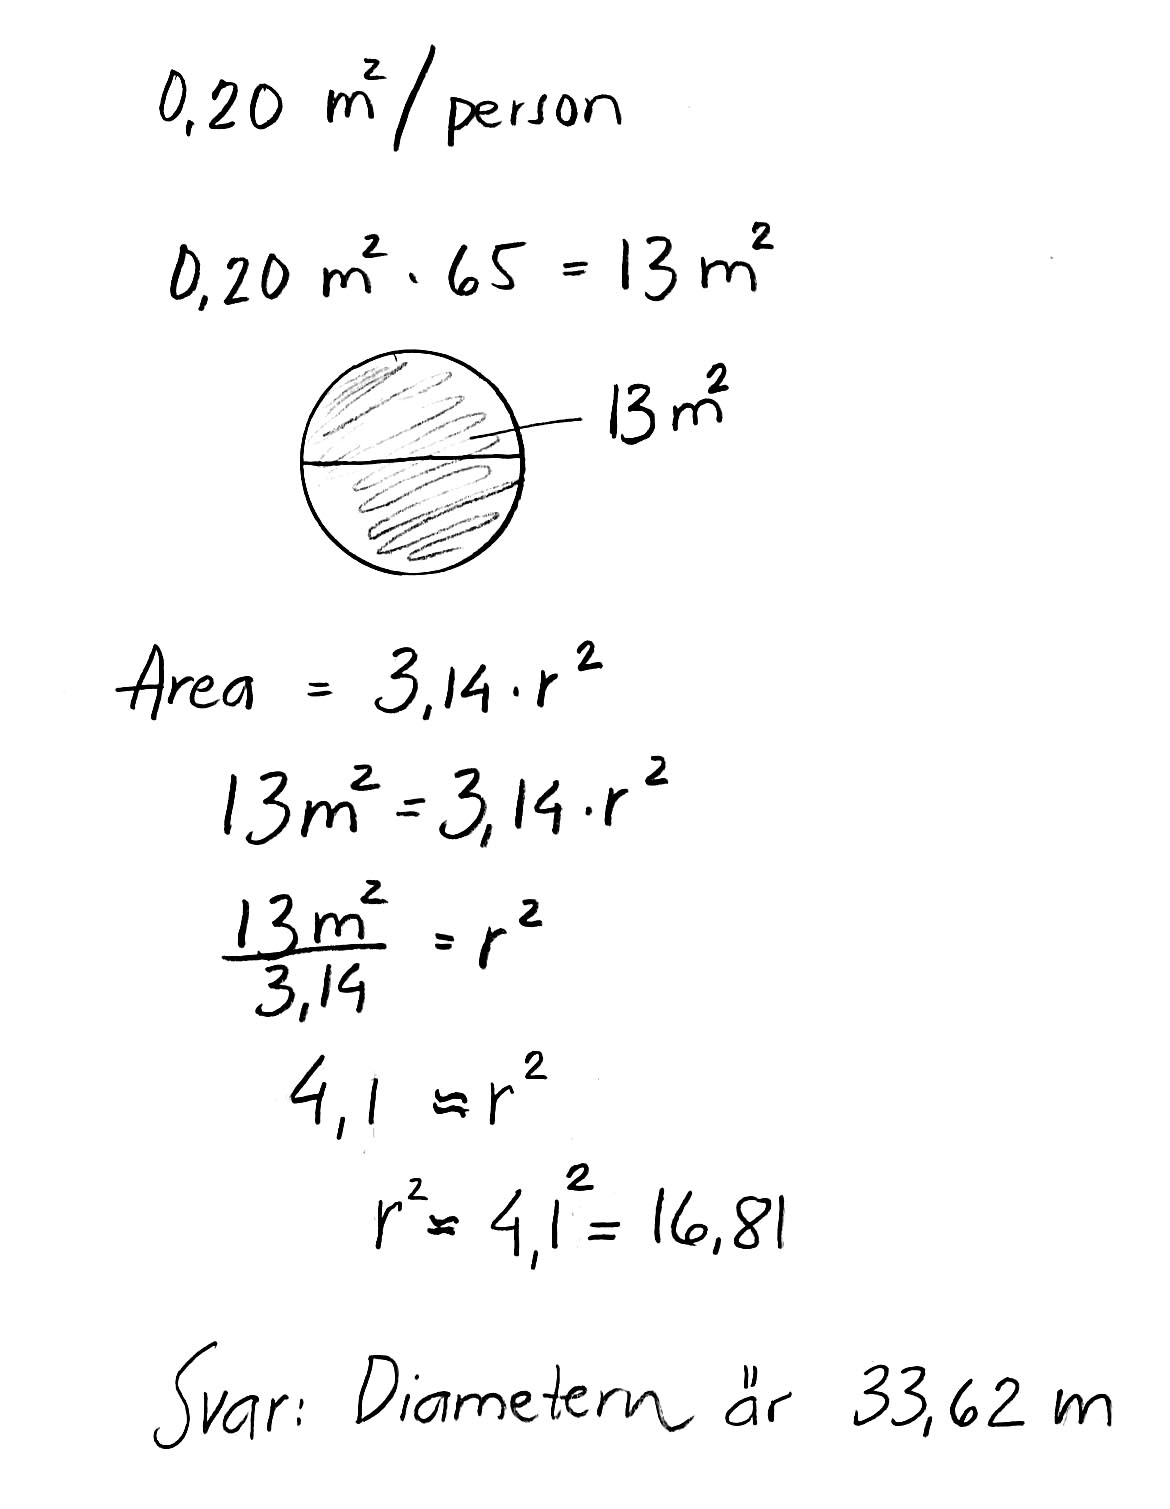 0,20 m²/person
0,20 m² · 65 = 13 m²
13 m²
Area = 3,14 · r²
13 m² = 3,14 · r²
13 m²
3,14
= r²
4,1 ≈ r²
r² ≈ 4,1² = 16,81
Svar: Diametern är 33,62 m